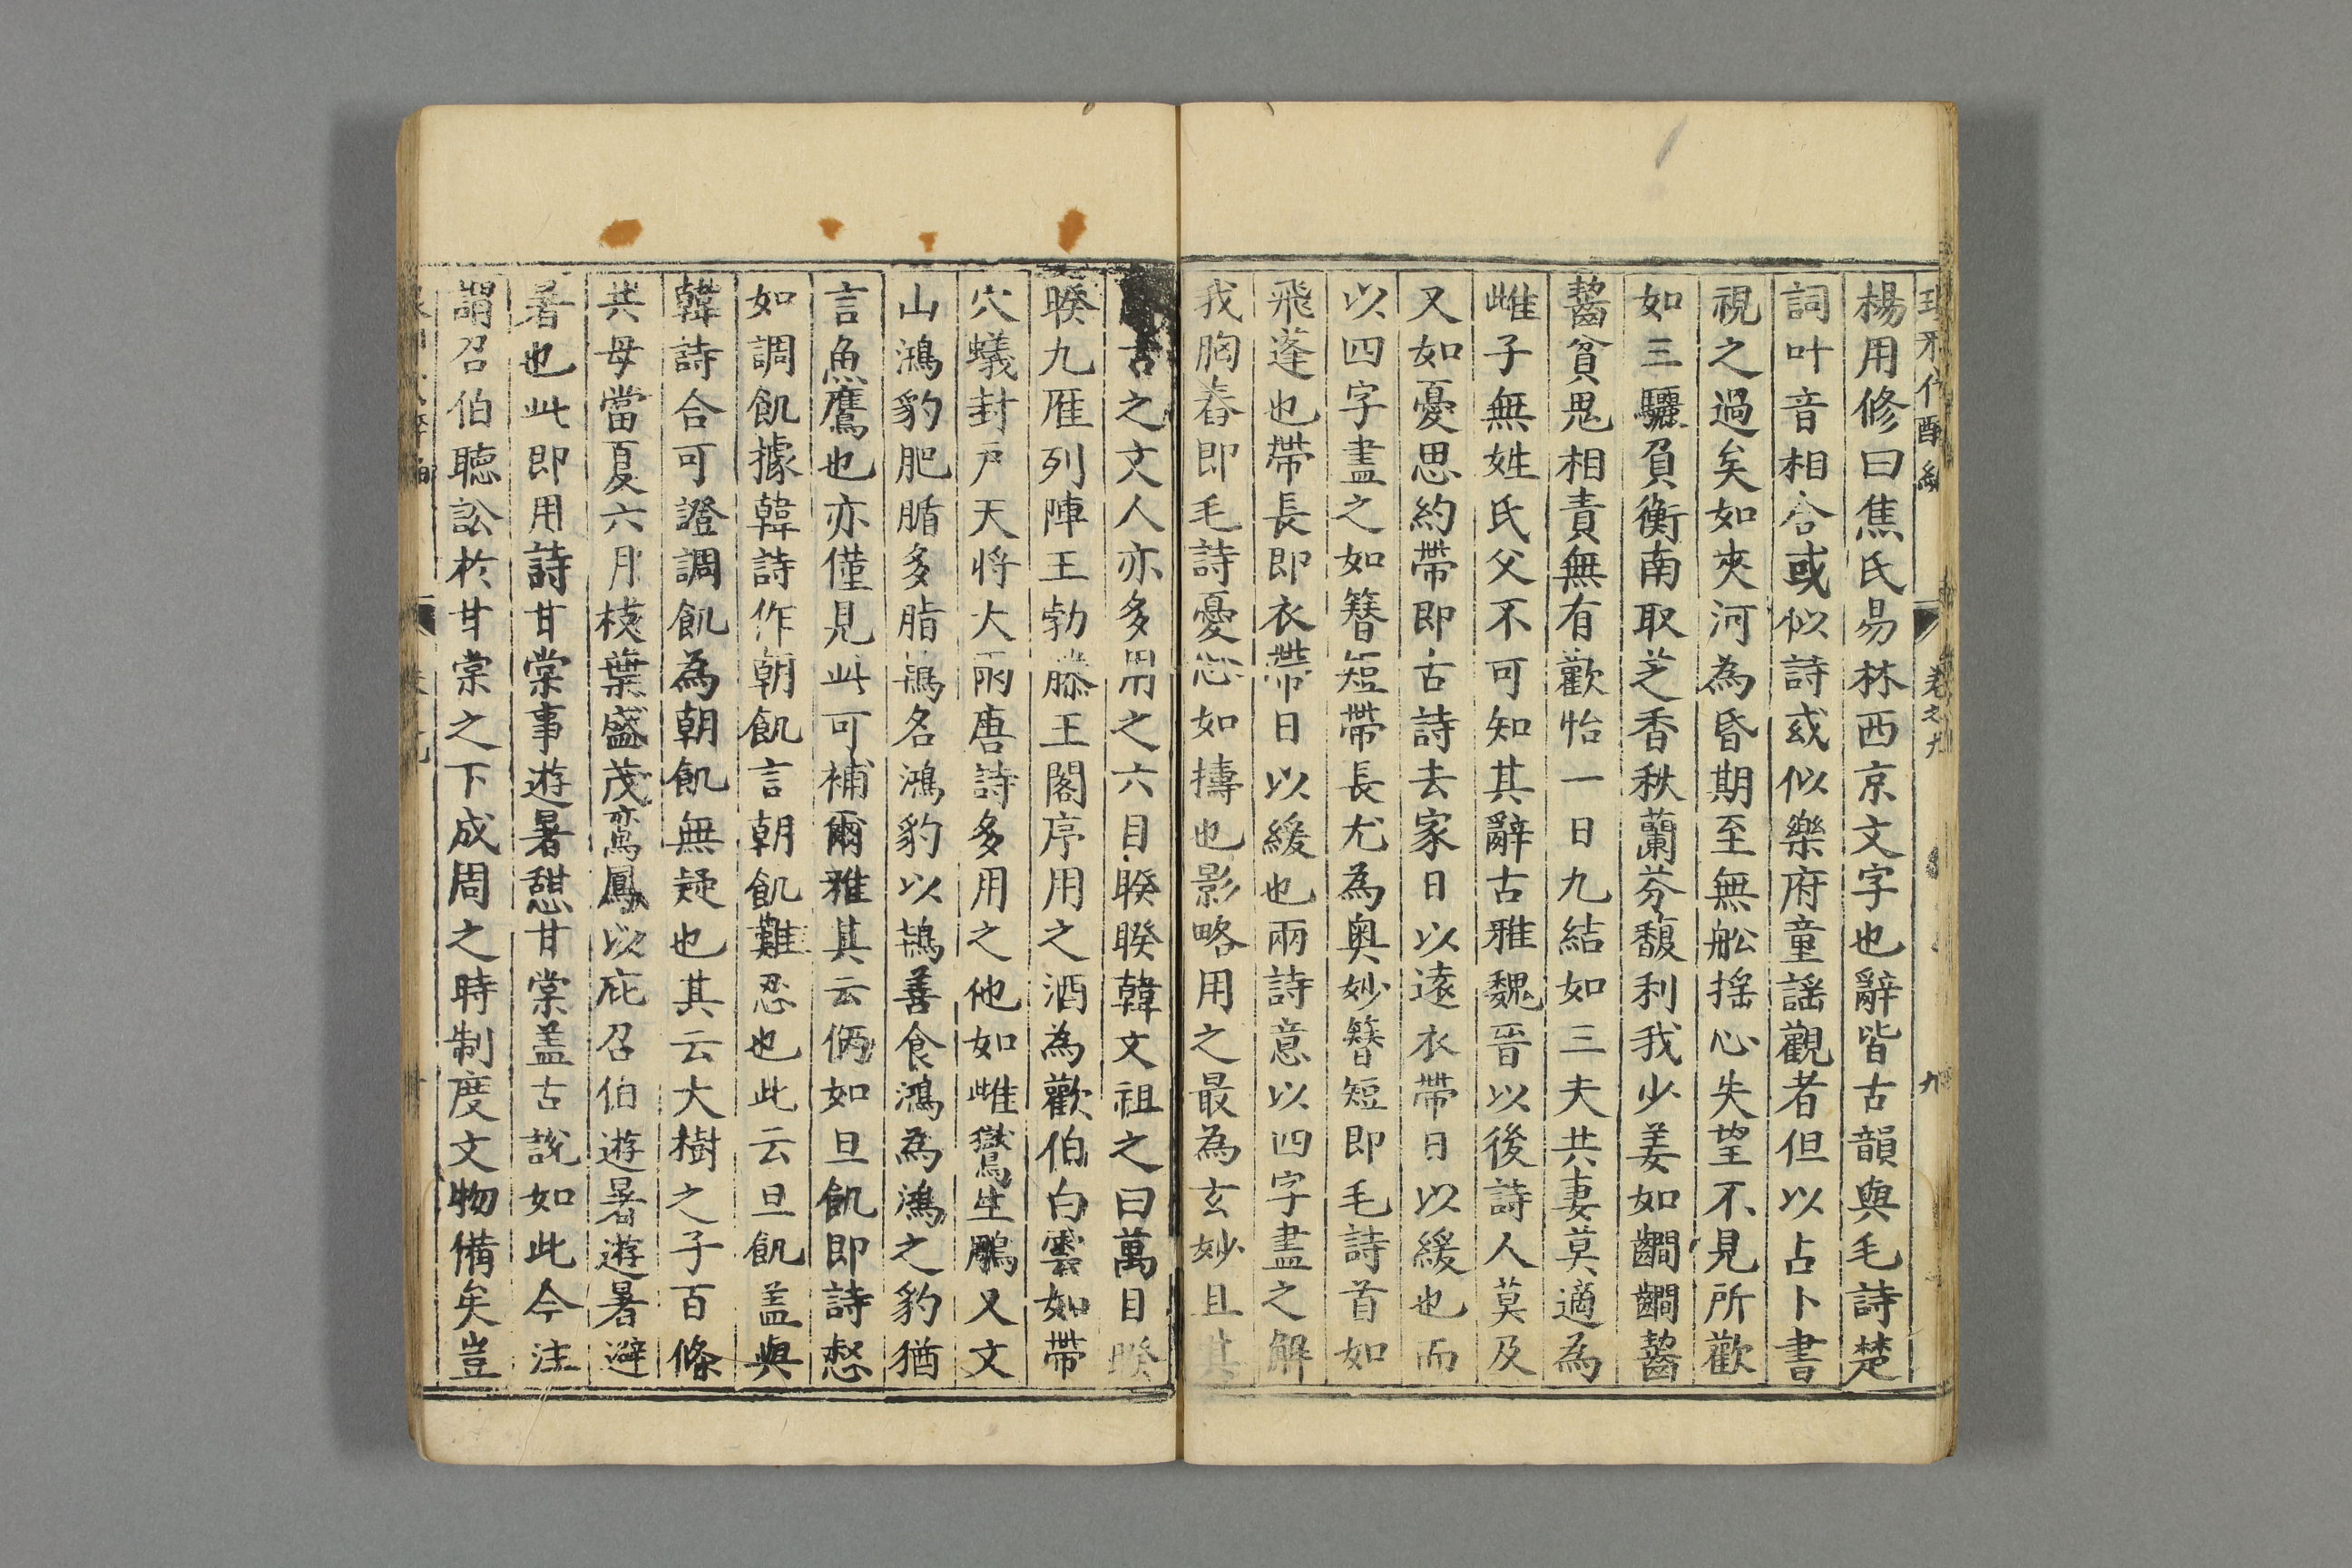 琅邪代醉編 卷之九 九
楊用修曰焦氏易林西京文字也辭皆古韻與毛詩楚
詞叶音相合或似詩或似樂府童謡觀者但以占卜書
視之過矣如夾河為昏期至無舩揺心失望不見所歡
如三驪負衡南取芝香秋蘭芬馥利我少姜如齫齫齧
齧貧鬼相責無有歡怡一日九結如三夫共妻莫適為
雌子無姓氏父不可知其辭古雅魏晉以後詩人莫及
又如憂思約帶即古詩去家日以遠衣帶日以緩也而
以四字盡之如簪短帶長尤為奥妙簪短即毛詩首如
飛蓬也帶長即衣帶日以緩也兩詩意以四字盡之解
我胸舂即毛詩憂心如擣也影略用之最為玄妙且其
古之文人亦多用之六目睽睽韓文祖之曰萬目睽
睽九雁列陣王勃滕王閣序用之酒為歡伯白雲如帶
穴蟻封戸天将大雨唐詩多用之他如雌鸑生鵰又文
山鴻豹肥腯多脂鴇名鴻豹以鴇善食鴻為鴻之豹猶
言魚鷹也亦僅見此可補爾雅其云俩如旦飢即詩惄
如調飢據韓詩作朝飢言朝飢難忍也此云旦飢盖與
韓詩合可證調飢為朝飢無疑也其云大樹之子百條
共母當夏六月枝葉盛茂鸞鳳以庇召伯遊暑遊暑避
暑也此即用詩甘棠事遊暑憇甘棠盖古說如此今注
謂召伯聴訟於甘棠之下成周之時制度文物備矣豈